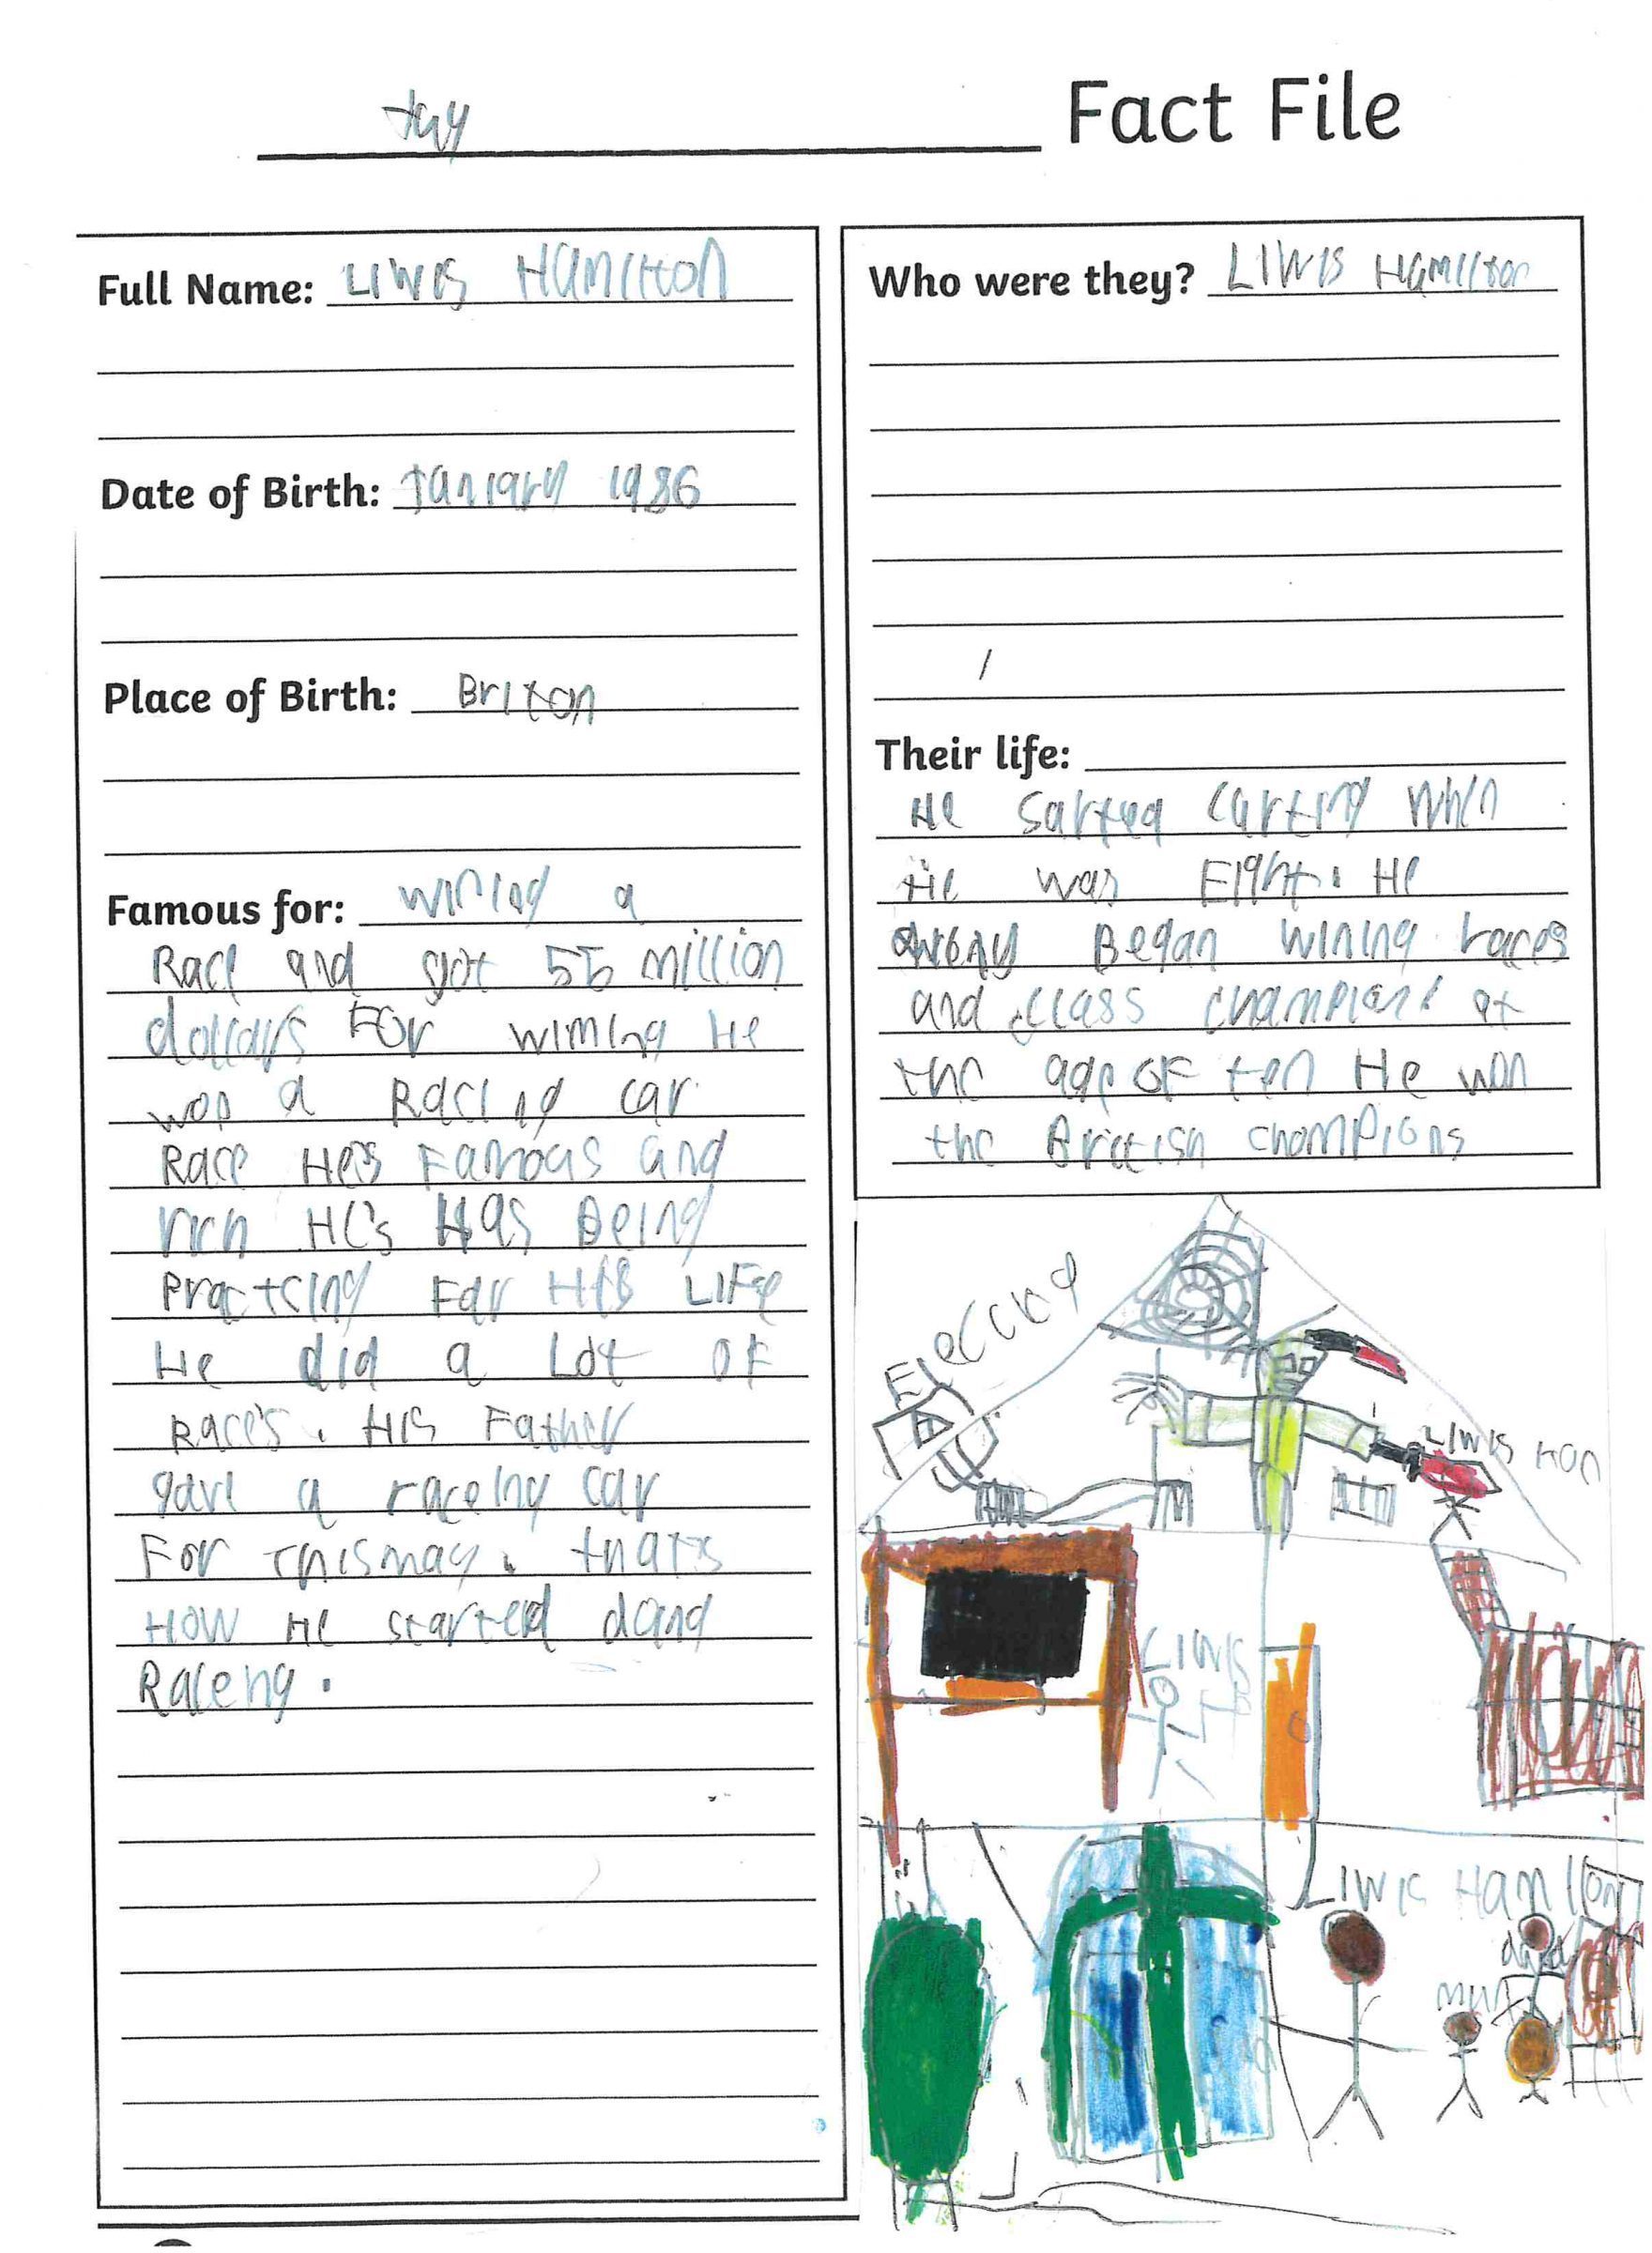 Jay Fact File
Full Name: LIWIS HAMILTON
Date of Birth: Janiary 1986
Place of Birth: Briton
Famous for: wining a
Race and got 55 million
dollars For wining He
won a Racing car
Race He's Famoas and
rich He's Has Being
Practcing For His LIFe
He did a Lot OF
Race's. HIS Father
gave a raceing car
For
thats
How He started doing
Raceng.
Who were they? LIWIS Hamilton
Their life:
He Sarted Carting when
He was Eight. He
Began wining races
and class champions at
the age OF ten He won
the British Champions
LIWIS
LIWIS
LIWIS Hamilton
dad
mum